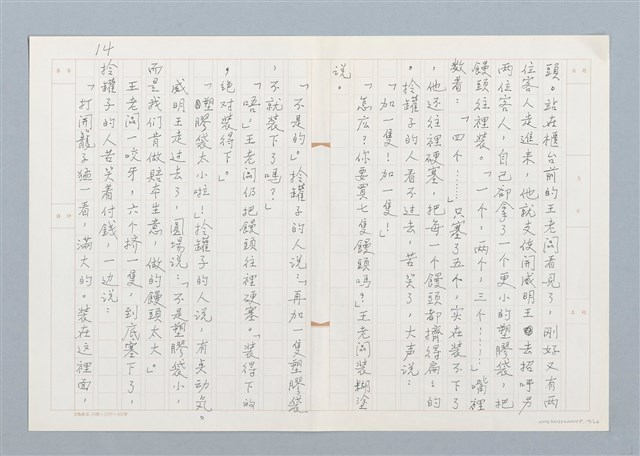 頭。站在櫃台前的王老闆看見了，剛好又有兩
位客人走進來，他就支使開威明王去招呼另
兩位客人，自己卻拿了一個更小的塑膠袋，把
饅頭往裡裝。「一个，兩个，三个！……」嘴裡
数着：「四个！……」只塞了五个，实在装不下了
，他还往裡硬塞，把每一个饅头都擠得扁扁的
。拎罐子的人看不过去，苦笑了，大声说：
「加一隻！加一隻！」
「怎么？你要買七隻饅頭嗎？」王老闆裝糊塗
说。
「不是的。」拎罐子的人说：「再加一隻塑膠袋
，不就装下了嗎？」
「唔，」王老闆仍把饅头往裡硬塞。「装得下的
，绝对装得下。」
「塑膠袋太小啦！」拎罐子的人说，有矣动气。
威明王走过去了，圓場说：「不是塑膠袋小，
而是我们肯做賠本生意，做的饅頭太大。」
王老闆一咬牙，六个挤一隻，到底塞下了，
拎罐子的人苦笑着付钱，一边说：
「打開龍子殖一看，滿大的。装在这裡面，
14